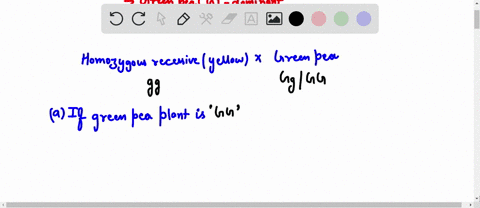 Homozygous recessive (yellow) × Green pea
gg Gg/GG
(a) If green pea plant is 'GG'